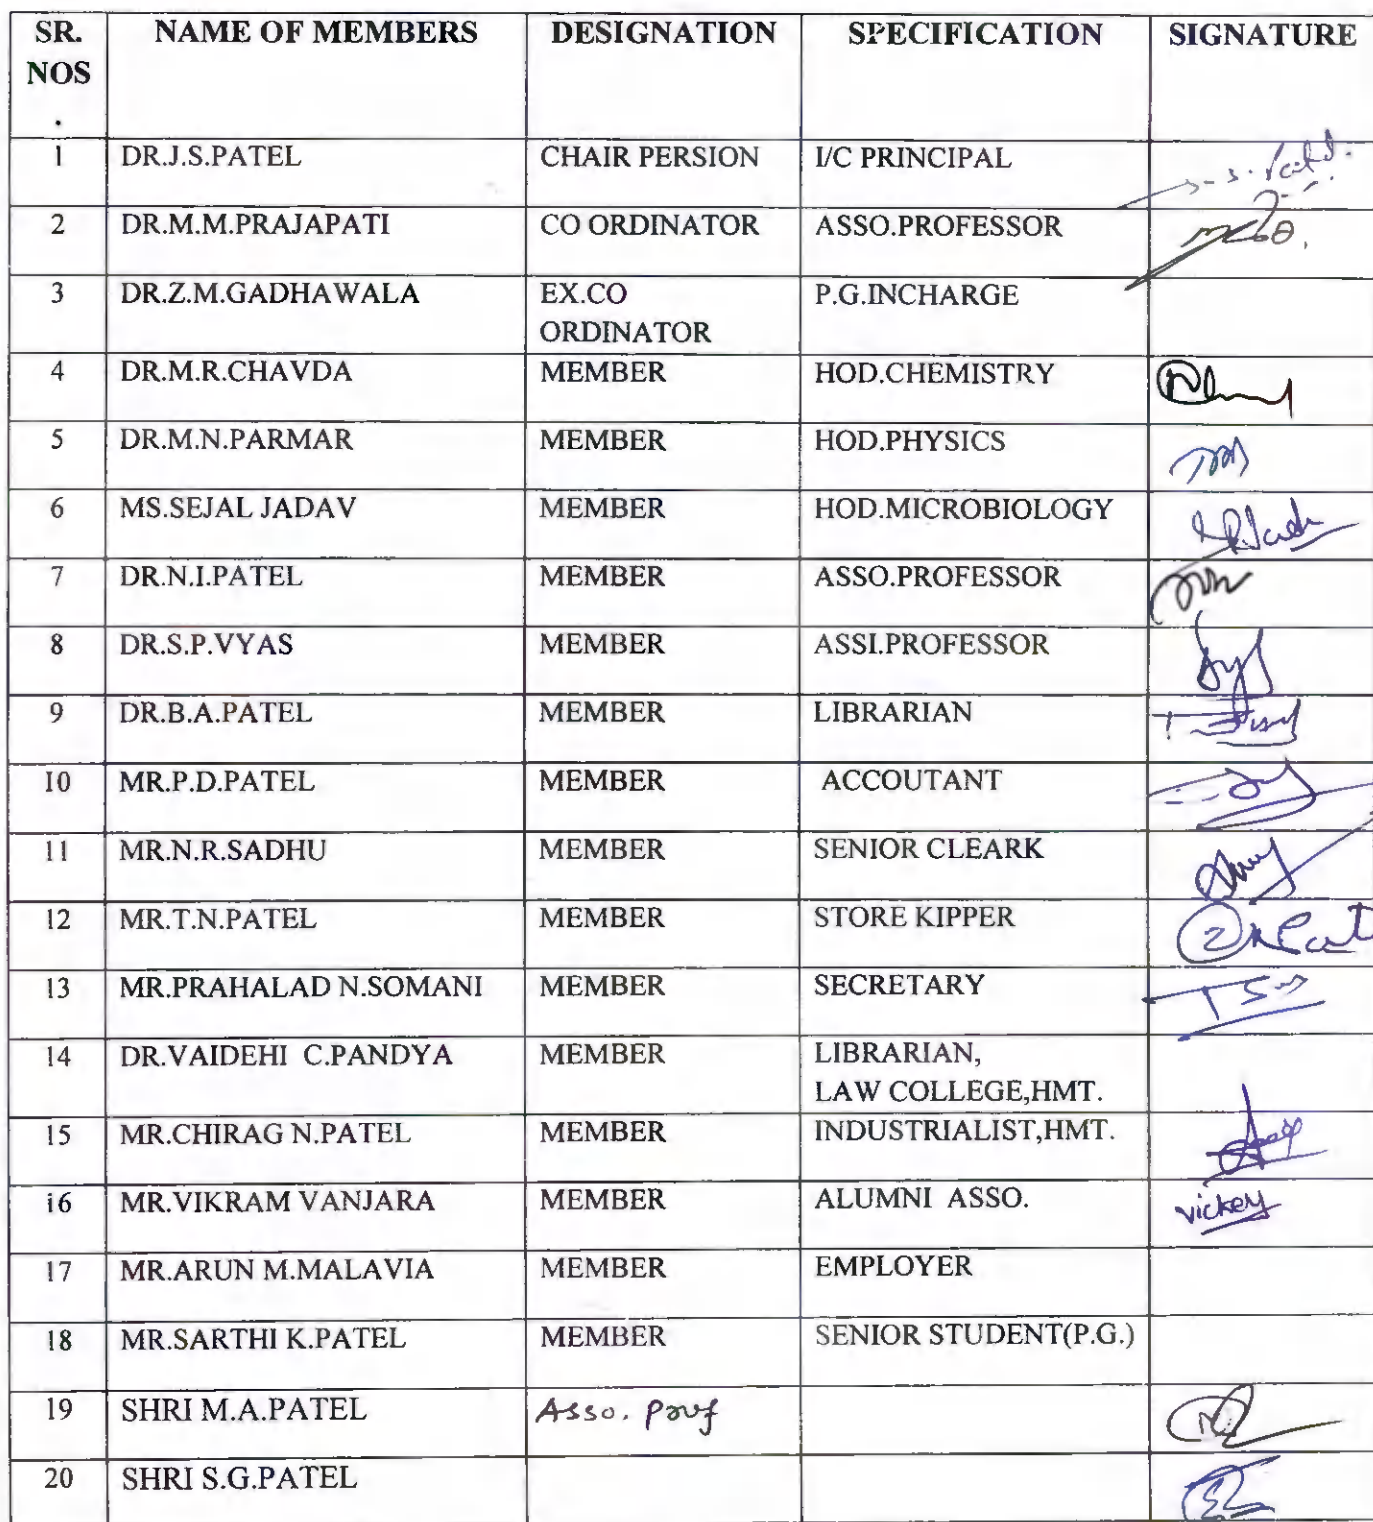 SR. NAME OF MEMBERS DESIGNATION SPECIFICATION SIGNATURE
NOS
.
1 DR.J.S.PATEL CHAIR PERSION I/C PRINCIPAL
2 DR.M.M.PRAJAPATI CO ORDINATOR ASSO.PROFESSOR
3 DR.Z.M.GADHAWALA EX.CO P.G.INCHARGE
ORDINATOR
4 DR.M.R.CHAVDA MEMBER HOD.CHEMISTRY
5 DR.M.N.PARMAR MEMBER HOD.PHYSICS
6 MS.SEJAL JADAV MEMBER HOD.MICROBIOLOGY
7 DR.N.I.PATEL MEMBER ASSO.PROFESSOR
8 DR.S.P.VYAS MEMBER ASSI.PROFESSOR
9 DR.B.A.PATEL MEMBER LIBRARIAN
10 MR.P.D.PATEL MEMBER ACCOUTANT
11 MR.N.R.SADHU MEMBER SENIOR CLEARK
12 MR.T.N.PATEL MEMBER STORE KIPPER
13 MR.PRAHALAD N.SOMANI MEMBER SECRETARY
14 DR.VAIDEHI C.PANDYA MEMBER LIBRARIAN,
LAW COLLEGE,HMT.
15 MR.CHIRAG N.PATEL MEMBER INDUSTRIALIST,HMT.
16 MR.VIKRAM VANJARA MEMBER ALUMNI ASSO. vickey
17 MR.ARUN M.MALAVIA MEMBER EMPLOYER
18 MR.SARTHI K.PATEL MEMBER SENIOR STUDENT(P.G.)
19 SHRI M.A.PATEL Asso. Prof
20 SHRI S.G.PATEL